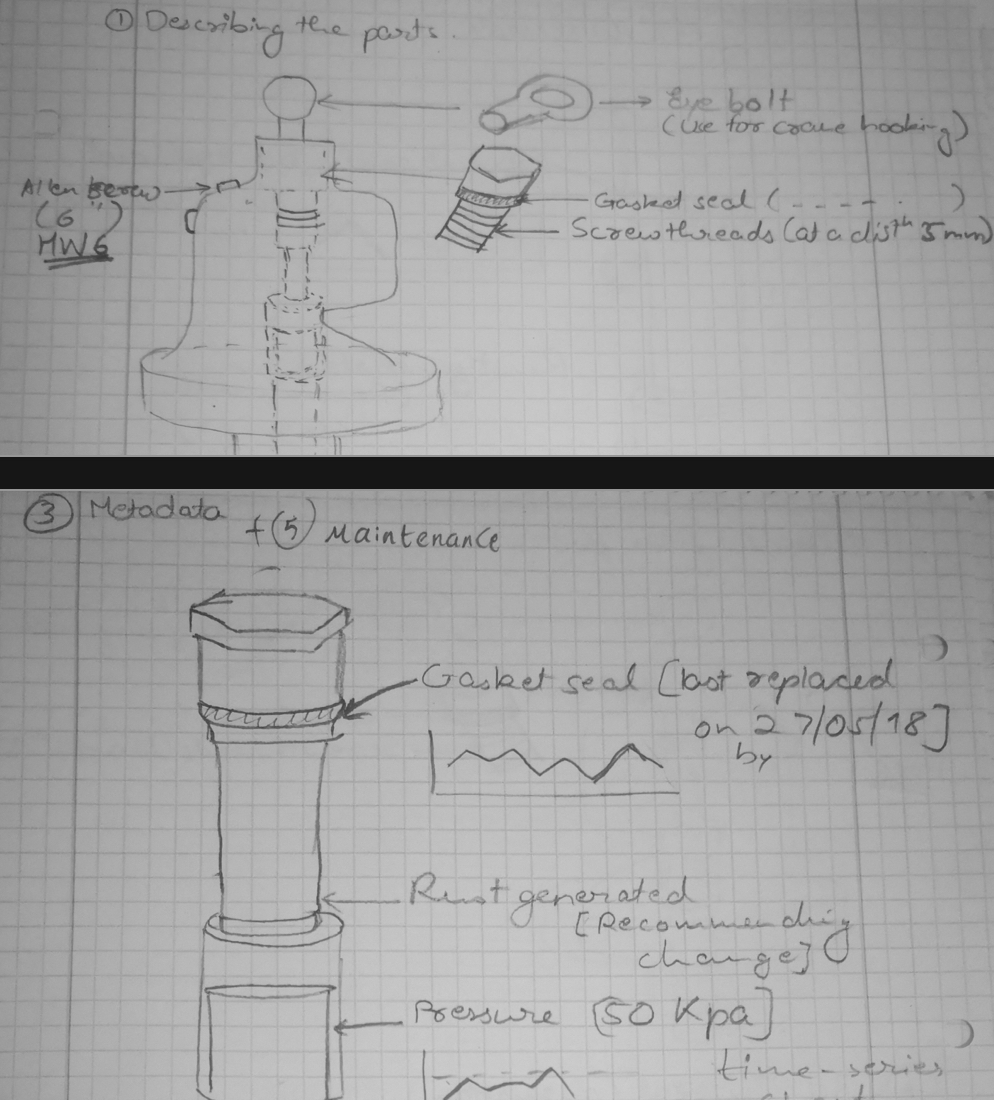 ① Describing the parts.
Eye bolt
(Use for crane hooking)
Allen screw
(6")
HW6
Gasket seal (- - - - . )
Screw threads (at a distn 5mm)
③ Metadata
+ ⑤ Maintenance
Gasket seal [last replaced
on 27/05/18]
by
Rust generated
[Recommending
change]
Pressure [50 Kpa]
time-series